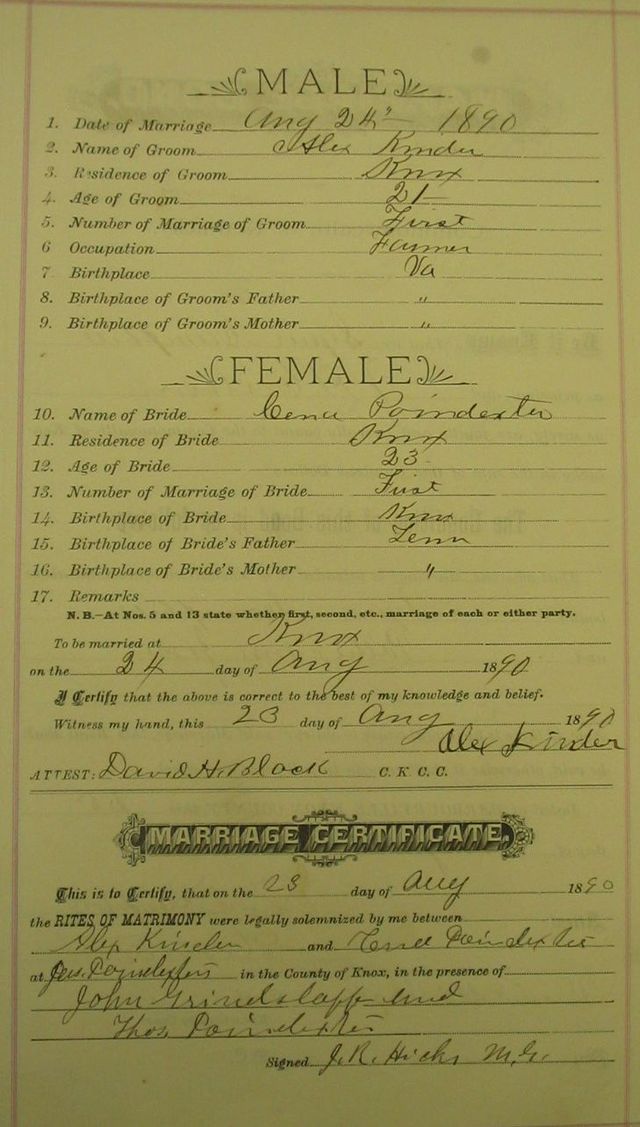 MALE
1. Date of Marriage Aug 24" 1890
2. Name of Groom Alex Kinder
3. Residence of Groom Knox
4. Age of Groom 21
5. Number of Marriage of Groom First
6 Occupation Farmer
7 Birthplace Va
8. Birthplace of Groom's Father "
9. Birthplace of Groom's Mother "
FEMALE
10. Name of Bride Poindexter
11. Residence of Bride Knox
12. Age of Bride 23
13. Number of Marriage of Bride First
14. Birthplace of Bride Knox
15. Birthplace of Bride's Father Tenn
16. Birthplace of Bride's Mother "
17. Remarks
N. B.—At Nos. 5 and 13 state whether first, second, etc., marriage of each or either party.
To be married at Knox
on the 24 day of Aug 1890
I Certify that the above is correct to the best of my knowledge and belief.
Witness my hand, this 23 day of Aug 1890
Alex Kinder
ATTEST: David H. Black C. K. C. C.
MARRIAGE CERTIFICATE.
This is to Certify, that on the 23 day of Aug 1890
the RITES OF MATRIMONY were legally solemnized by me between
Alex Kinder and Poindexter
at Poindexters in the County of Knox, in the presence of
John Grindstaff and
Thos Poindexter
Signed J. R. Hicks M. G.